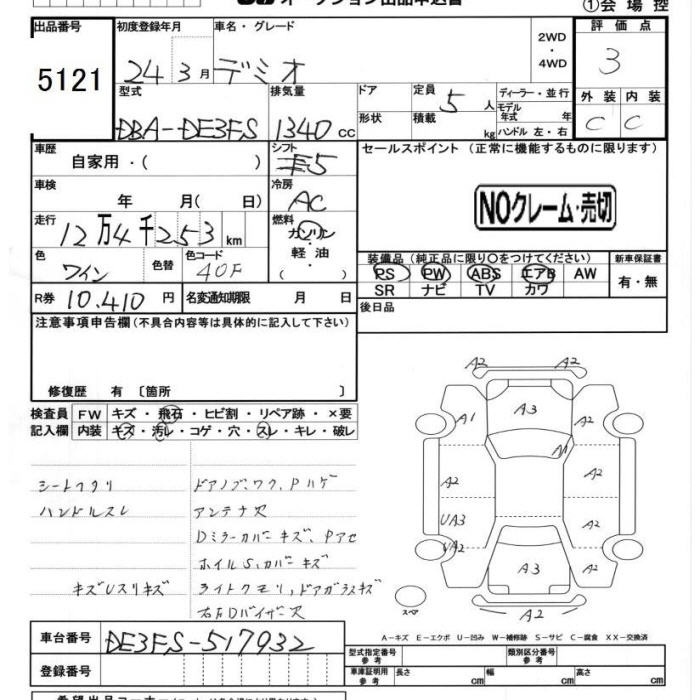 オークション出品申込書
①会場控
出品番号
5121
初度登録年月 車名・グレード
24 3月 デミオ
2WD
・
4WD
評価点
3
外装 内装
C C
型式 排気量
DBA-DE3FS 1340 cc
ドア 定員 5人
形状 積載 kg
ディーラー・並行
モデル年式 年
ハンドル 左・右
車歴
自家用・( )
シフト
5
セールスポイント(正常に機能するものに限ります)
NOクレーム・売切
車検
年 月( 日)
冷房
AC
走行
12万4千253km
燃料
ガソリン
・
軽油
( )
色
ワイン
色替
色コード
40F
R券 10.410 円
名変通知期限 月 日
装備品(純正品に限り○をつけてください)
PS PW ABS エアB AW
SR ナビ TV カワ
新車保証書
有・無
後日品
注意事項申告欄(不具合内容等は具体的に記入して下さい)
修復歴 有〔箇所 〕
検査員記入欄
FW キズ・飛石・ヒビ割・リペア跡・×要
内装 キズ・汚レ・コゲ・穴・スレ・キレ・破レ
シートフクリ
ハンドルスレ
キズUスリキズ
ドアノブ、ワク、Pハゲ
アンテナ欠
Dミラーカバーキズ、Pアセ
ホイルS、カバーキズ
ライトクモリ、ドアガラスキズ
右FDバイザー欠
A2 A2
A1 A3 A2
A1
A2 A2
UA3 A2
UA2 A3 A2
A2
スペア
A-キズ E-エクボ U-凹み W-補修跡 S-サビ C-腐食 XX-交換済
車台番号 DE3FS-517932
登録番号
型式指定番号 参考
類別区分番号 参考
車庫証明用 参考
長さ cm 幅 cm 高さ cm